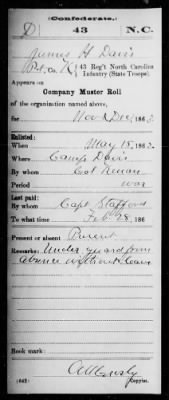 (Confederate.)
D 43 N.C.
James H Davis
Pvt, Co. K, 43 Reg't North Carolina
Infantry (State Troops).
Appears on
Company Muster Roll
of the organization named above,
for Nov & Dec, 186
Enlisted:
When May 15, 186
Where Camp Davis
By whom Col Kenan
Period war
Last paid:
By whom Capt Stafford
To what time Feb 28, 186
Present or absent Present
Remarks: Under guard from
absence without leave
Book mark:
(642) Copyist.